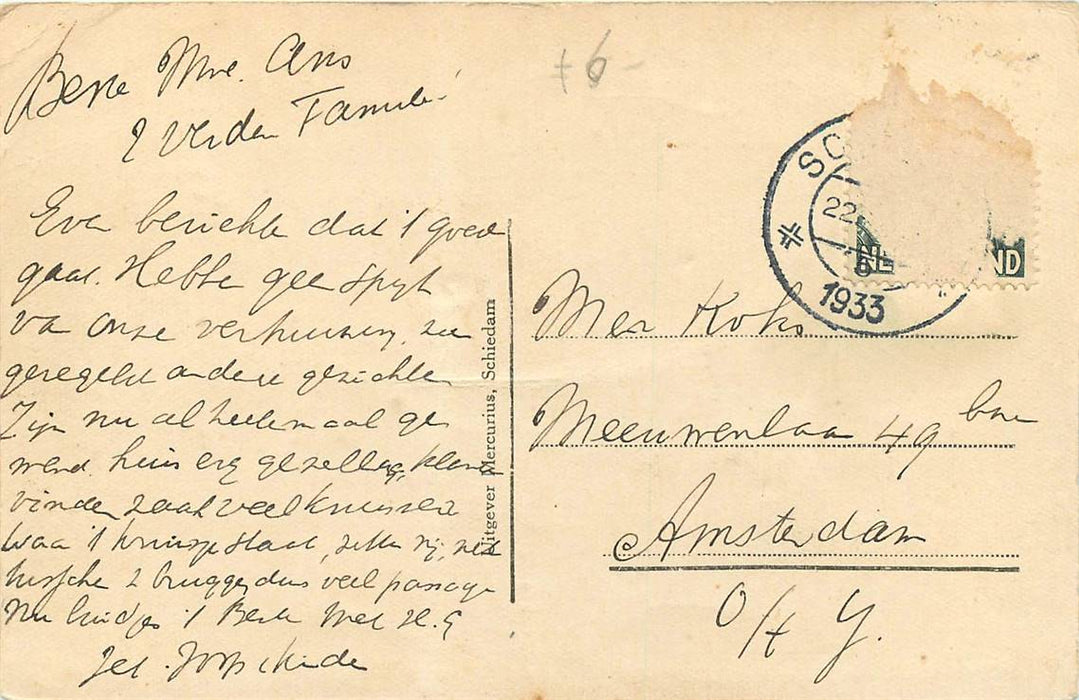 Beste Mve. Ans
& verder Familie
Even berichte dat 't goed
gaat. Hebbe gee spijt
va onze verhuizing, zee
geregelt andere gezichte
Zijn nu al heelemaal ge
wend. huis erg gezellig, klan
vinden zaak veel
waar 't kruisje staat, zitte wij, net
tussche 2 brugge, dus veel passage
Nu luidjes 't Beste Met H. G
Joop
± 6 -
SC
22
6
1933
NE ND
Uitgever Mercurius, Schiedam
Mer Koks
Meeuwenlaa 49 bne
Amsterdam
O/H Y.